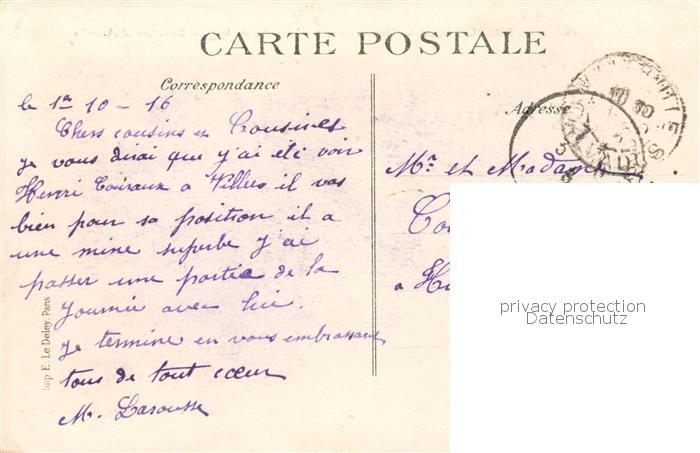 CARTE POSTALE
Correspondance
Adresse
le 1er 10 - 16
Chers cousins et Cousines
je vous dirai que j'ai eté voir
Henri à Villers il vas
bien pour sa position il a
une mine superbe j'ai
passer une partie de la
journée avec lui.
je termine en vous embrassant
tous de tout cœur
M. Larousse
Mr et Madame
Co
a H
Imp E. Le Deley, Paris
privacy protection
Datenschutz